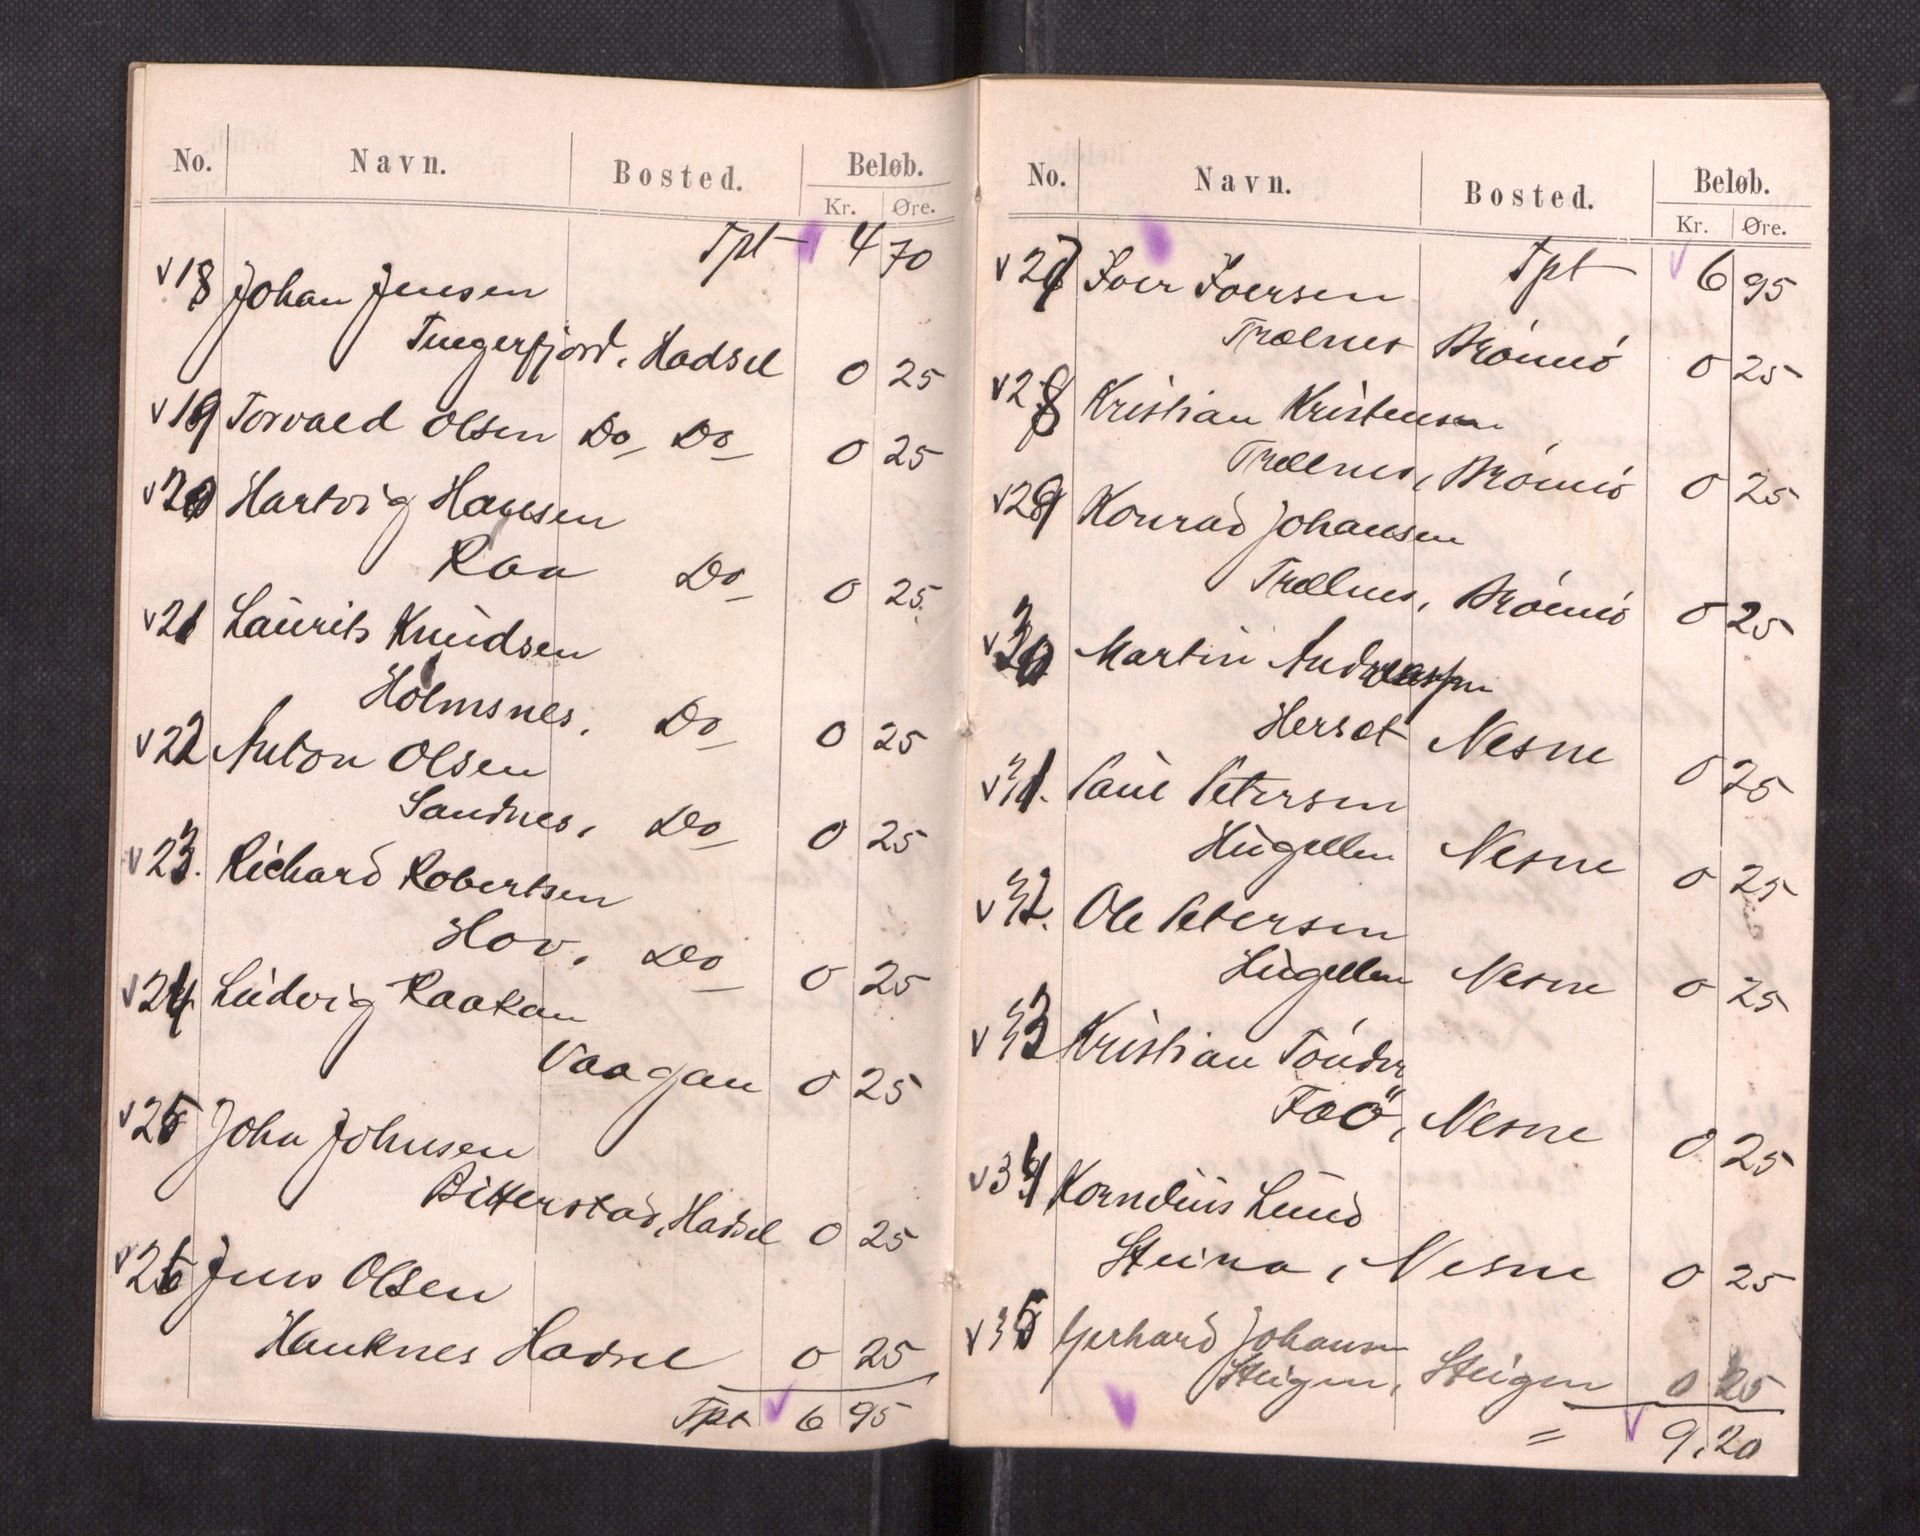 No. Navn. Bosted. Beløb.
Kr. Øre.
Tpt 4 70
v 18 Johan Jensen
Tuegerfjord, Hadsel 0 25
v 19 Torvald Olsen Do Do 0 25
v 20 Hartvig Hansen
Raa Do 0 25
v 21 Laurits Knudsen
Holmsnes, Do 0 25
v 22 Anton Olsen
Sandnes, Do 0 25
v 23. Richard Robertsen
Hov, Do 0 25
v 24 Ludvig Kaakan
Vaagan 0 25
v 25 John Johnsen
Bitterstad, Hadsel 0 25
v 26 Jens Olsen
Hauknes Hadsel 0 25
Tpt 6 95
No. Navn. Bosted. Beløb.
Kr. Øre.
Tpt 6 95
v 27 Iver Iversen
Trælnes Brønnø 0 25
v 28 Kristian Kristensen
Trælnes, Brønnø 0 25
v 29 Konrad Johansen
Trælnes, Brønnø 0 25
v 30 Martin Andreassen
Herset Nesne 0 25
v 31. Paul Petersen
Hugellen Nesne 0 25
v 32. Ole Petersen
Hugellen Nesne 0 25
v 33 Kristian Tønder
Nesne 0 25
v 34 Kornelius Lund
Steina, Nesne 0 25
v 35 Gerhard Johansen
Steigen, Steigen 0 25
= 9,20